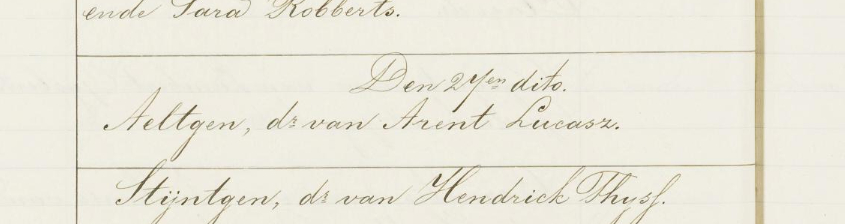 ende Sara Robberts.
Den 27en dito.
Aeltgen, dr van Arent Lucasz.
Stijntgen, dr van Hendrick Thysf.